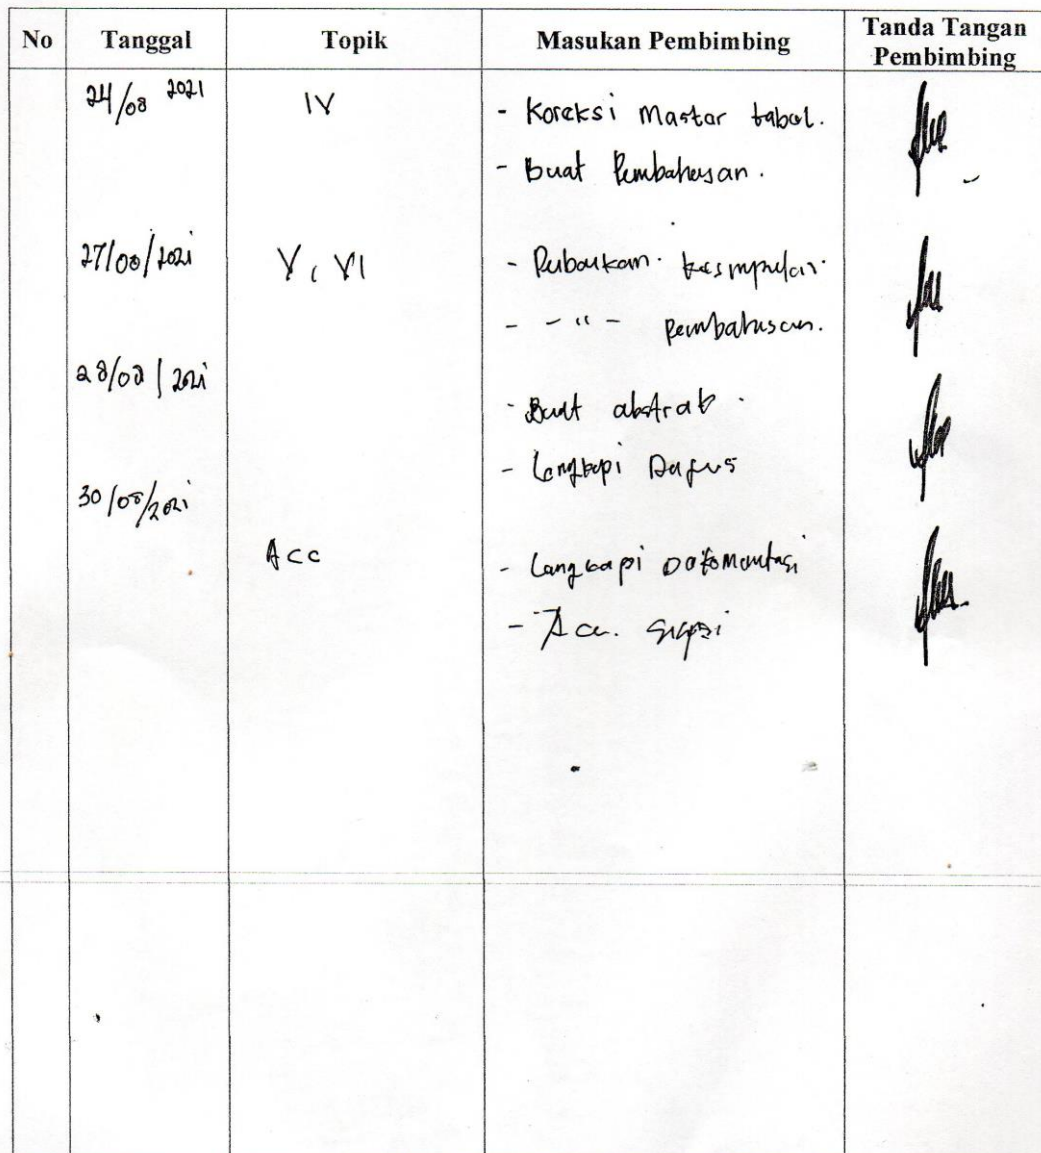 No Tanggal Topik Masukan Pembimbing Tanda Tangan Pembimbing
24/08 2021 IV - Koreksi Master tabel.
- Buat Pembahasan.
27/08/2021 V, VI - Perbaikan kesimpulan.
- - " - pembahasan.
28/08/2021
- Buat abstrak.
- Lengkapi Dapus
30/08/2021
Acc - Lengkapi Dokumentasi
- Acc.